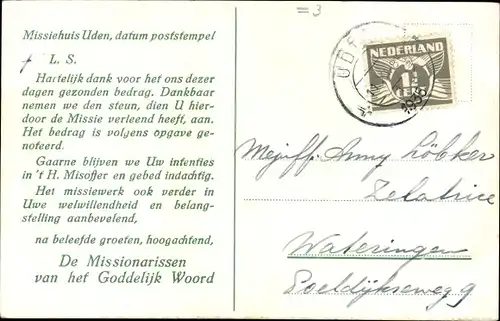 = 3
Missiehuis Uden, datum poststempel
L. S.
Hartelijk dank voor het ons dezer
dagen gezonden bedrag. Dankbaar
nemen we den steun, dien U hier-
door de Missie verleend heeft, aan.
Het bedrag is volgens opgave ge-
noteerd.
Gaarne blijven we Uw intenties
in 't H. Misoffer en gebed indachtig.
Het missiewerk ook verder in
Uwe welwillendheid en belang-
stelling aanbevelend,
na beleefde groeten, hoogachtend,
De Missionarissen
van het Goddelijk Woord
NEDERLAND
1½
Mejuff. Anny Löbker
Zelatrice
Wateringen
Poeldijkseweg 9